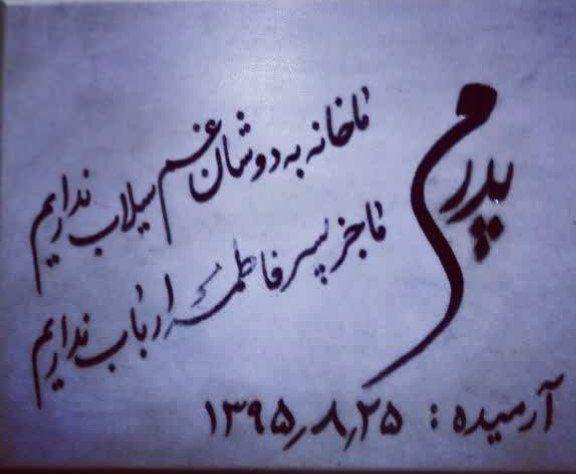 پدرم
ما خانه به دوشان غم سیلاب نداریم
ما جز پسر فاطمه ارباب نداریم
آرمیده : ۱۳۹۵٫۸٫۲۵